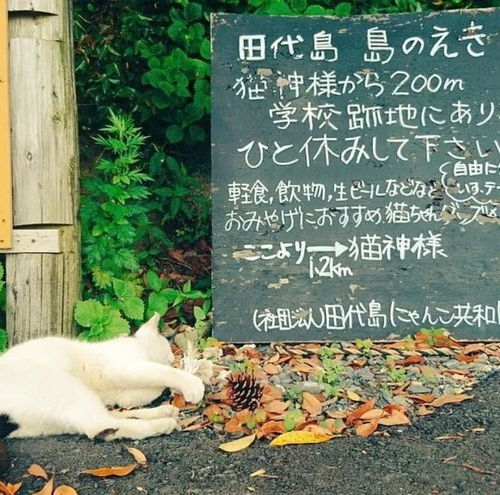 田代島 島のえき
猫神様から200m
学校跡地にあり
ひと休みして下さい
自由に
軽食,飲物,生ビールなどなど
いす、テ
おみやげにおすすめ猫ちゃんグッズ
ここより→猫神様
1.2km
(社団法人)田代島にゃんこ共和